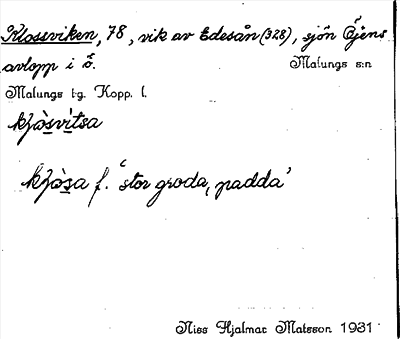 Klossviken, 78, vik av Edesån (328), sjön Öjens
avlopp i ö. Malungs s:n
Malungs t-g. Kopp. l.
kḷòsvitsa
kḷòsa f. 'stor groda, padda'
Niss Hjalmar Matsson 1931